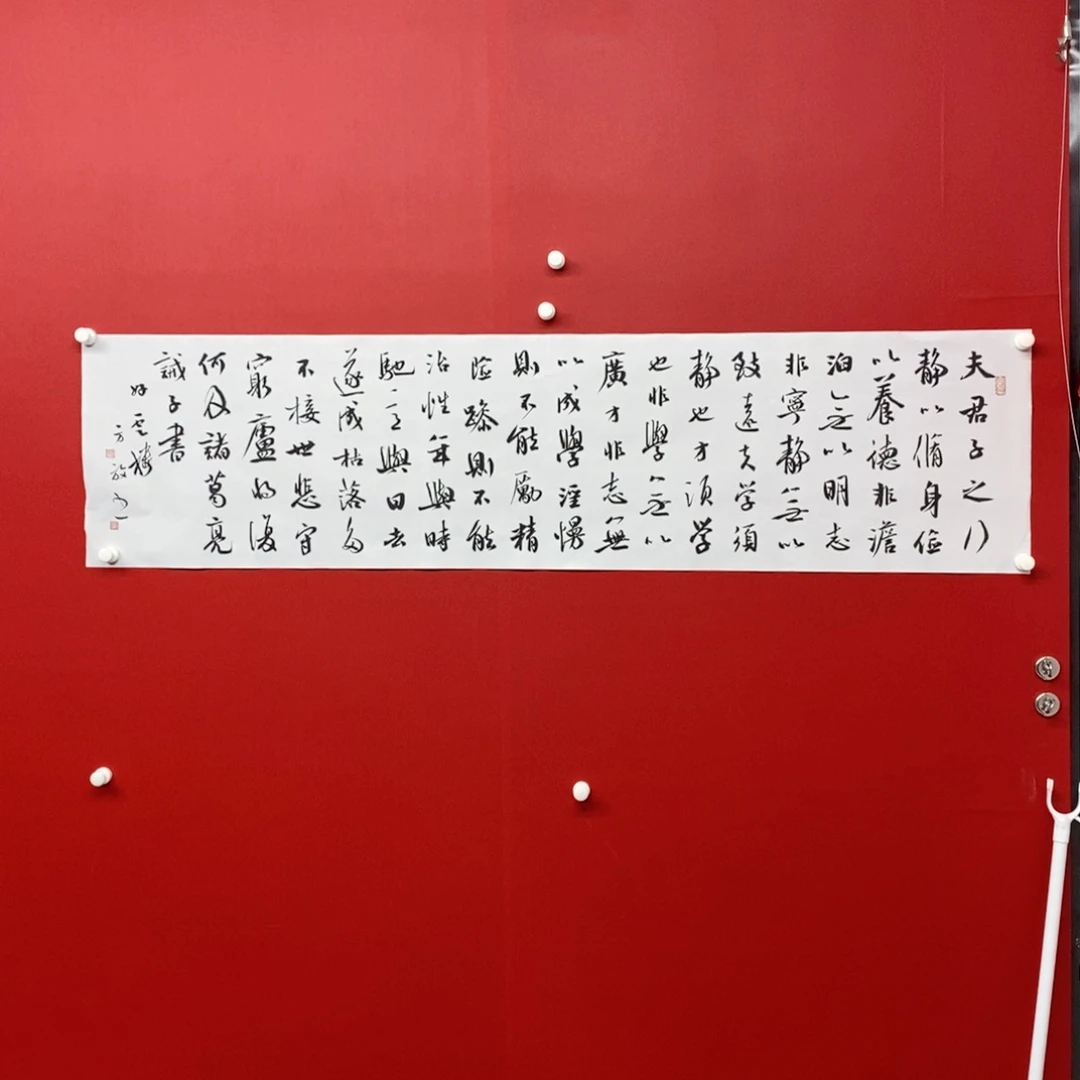 夫君子之行
静以脩身俭
以養德非澹
泊無以明志
非寧静無以
致遠夫学須
静也才須学
也非學無以
廣才非志無
以成學淫慢
則不能勵精
险躁則不能
治性年與時
馳意與日去
遂成枯落多
不接世悲守
窮廬将復
何及諸葛亮
誡子書